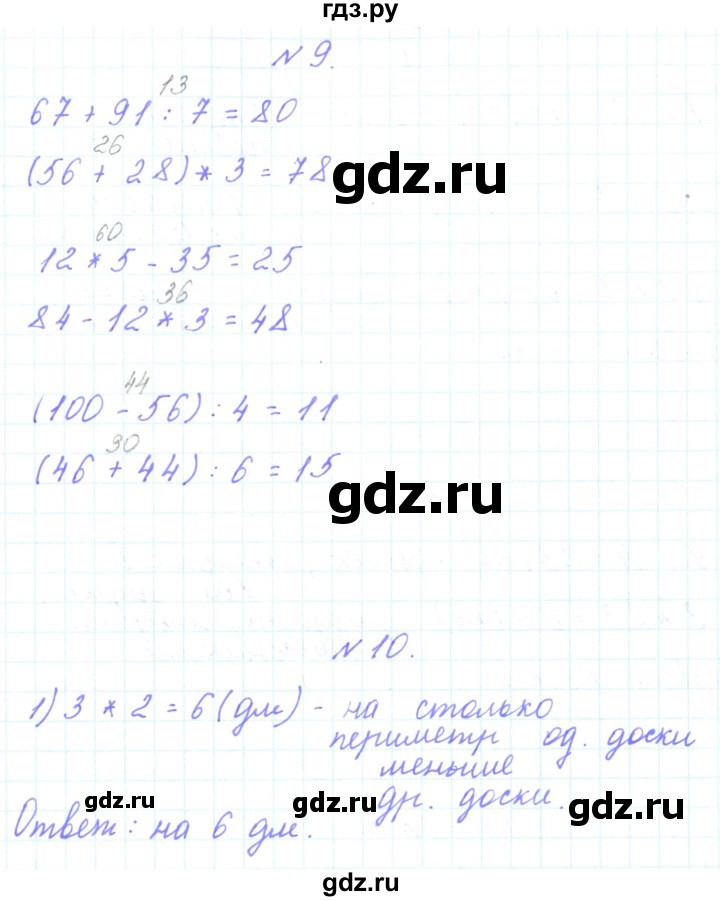 гдз.ру
№ 9.
13
67 + 91 : 7 = 80
26
(56 + 28) * 3 = 78
gdz.ru
60
12 * 5 - 35 = 25
36
84 - 12 * 3 = 48
44
(100 - 56) : 4 = 11
90
(46 + 44) : 6 = 15
gdz.ru
№ 10.
1) 3 * 2 = 6 (дм) - на столько
периметр од. доски
меньше
gdz.ru gdz.ru др. доски. gdz.ru
Ответ: на 6 дм.
gdz.ru